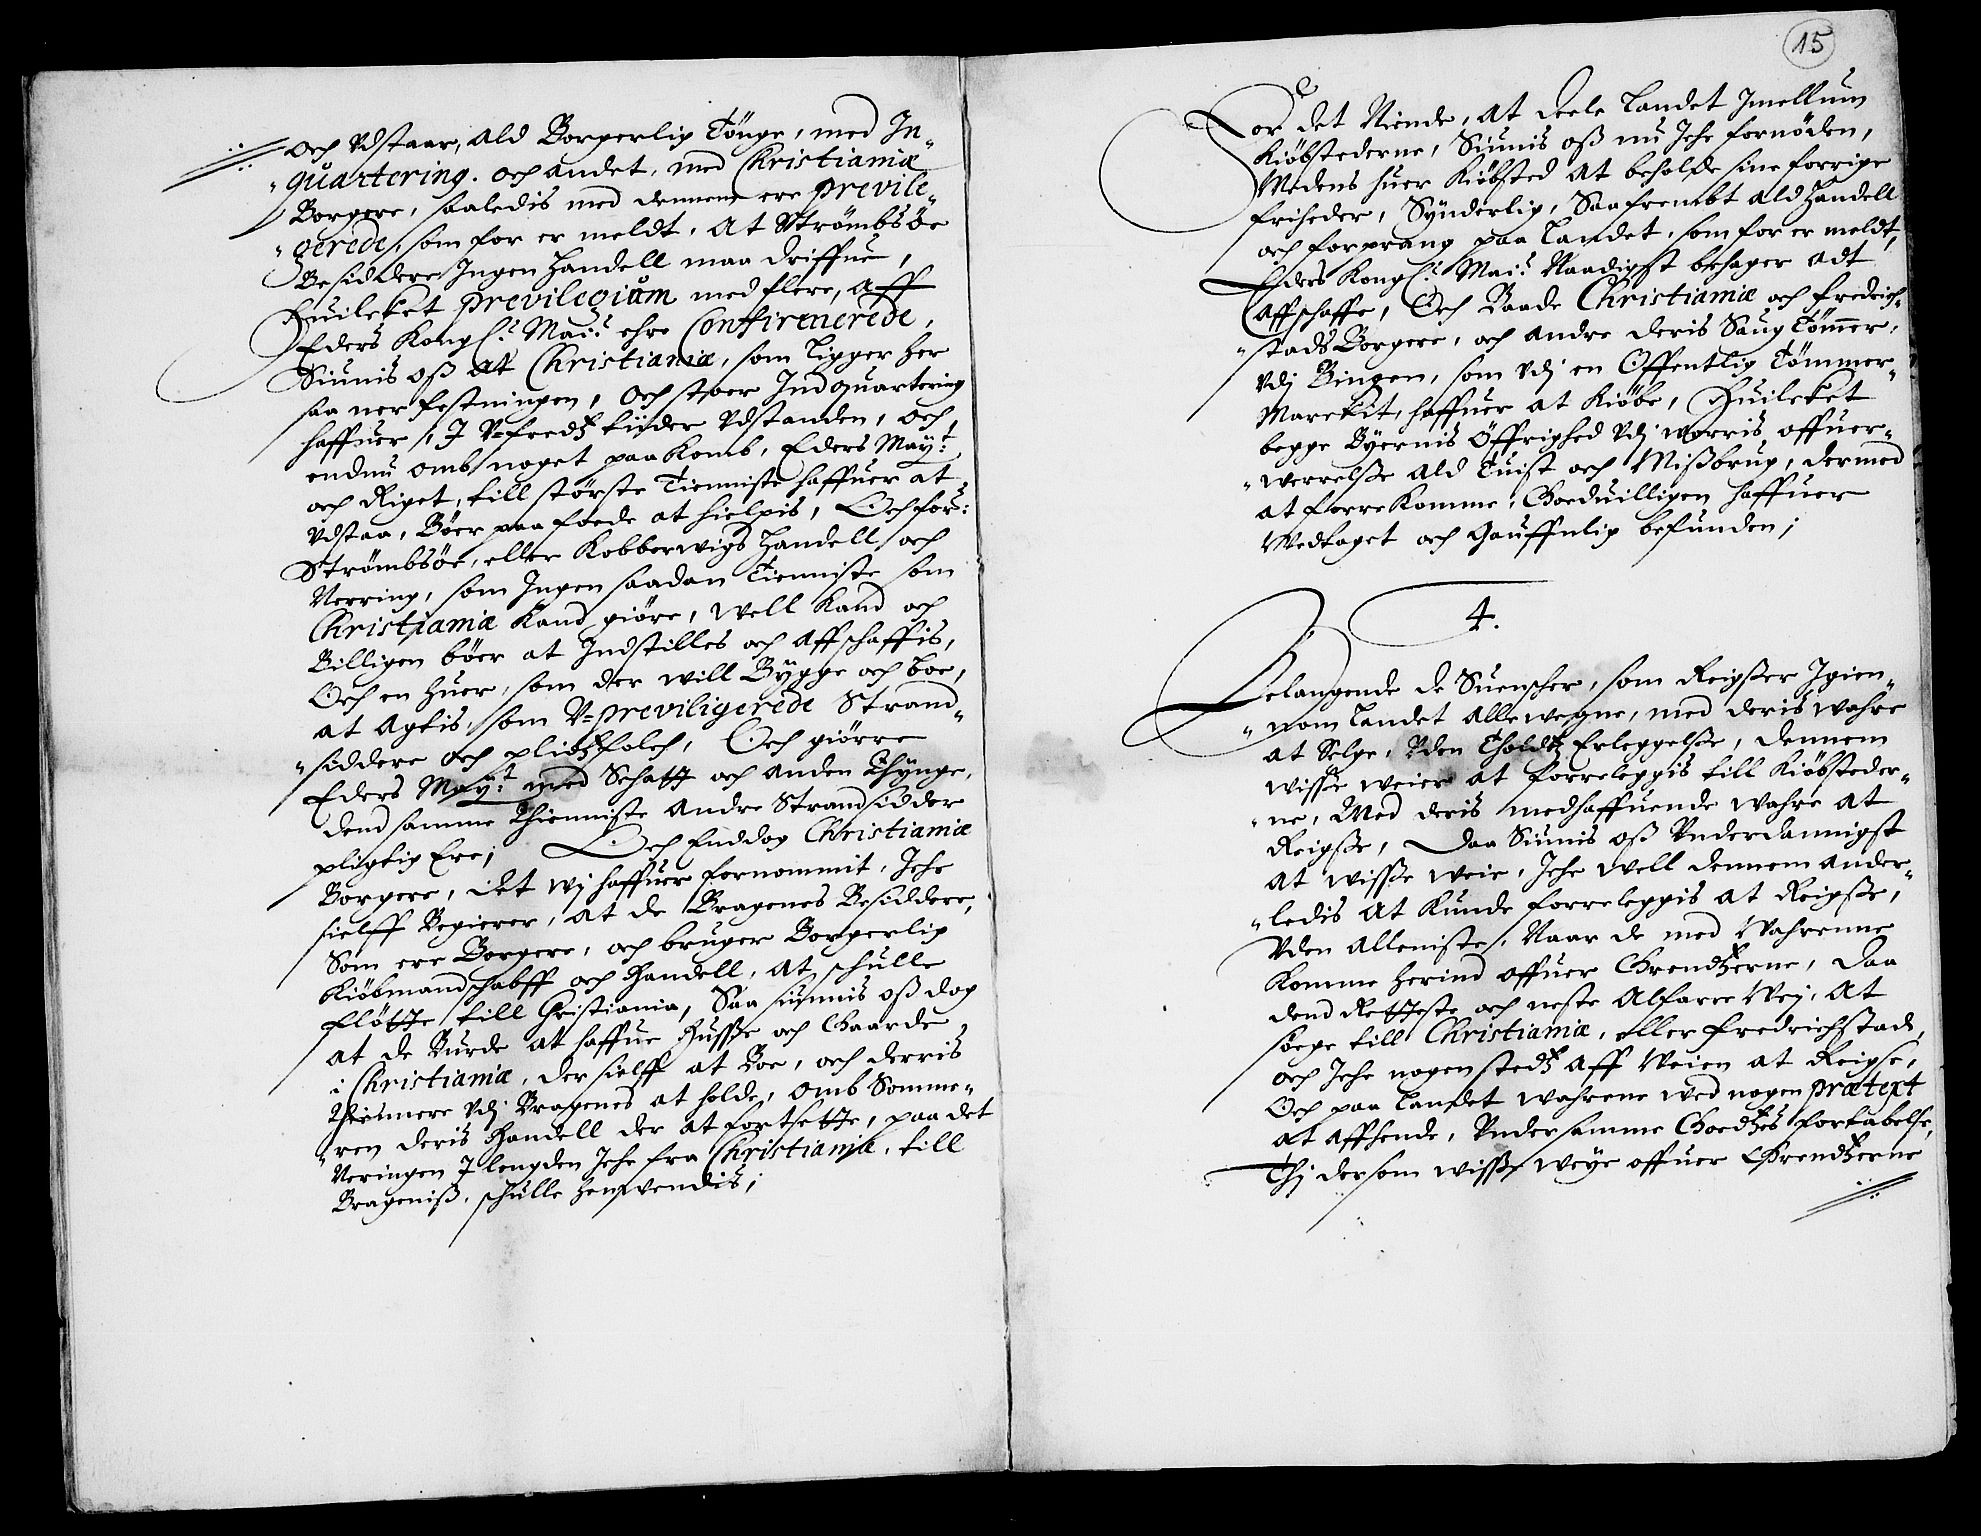 och Vdstaar, Ald Borgerlig Tönge, med In„
„quartering. och andet, med Christianiæ
Borgere, saaledis med dennem ere previle„
„gerede, som for er meldt, At Strömbsöe
Besiddere Ingen Handell maa driffue,
Huilcket previlegium med flere, Aff
Eders Kong: Mai:t ehre Confirmerede,
Siunis oß at Christiania, som ligger her
saa ner festningen, och stoer Indquartering
haffuer, I V=fredtz tijder Vdstanden, och
endnu omb noget paa komb, Eders May:t
och Riget, till störste Tienniste haffuer at
Vdstaa, Böer paa foede at hielpis, Och for:
Strömbsöe, eller Kobberwigs Handell och
Nerring, som Ingen saadan Tienniste som
Christiania kand giöre, well kand och
Billigen böer at Indstilles och Affschaffis,
Och en huer, som der will Bÿgge och boe,
at Agtis, som V=previligerede Strand„
„siddere och pligtzfolch, Och giörre
Eders May:t med Schatt och anden Thynge,
dend samme Thienniste andre Strandsidder
pligtig Ere; Och Enddog Christianiæ
Borgere, det wj haffuer fornommit, Iche
sielff Begierer, at de Bragenes Besiddere,
Som ere Borgere, och bruger Borgerlig
Kiöbmandschabff och Handell, at schulle
flötte till Christiania, Saa siunnis oß dog
at de Burde at haffue Husse och Gaarde
i Christiania, der sielff at Boe, och derris
Thiennere Vdj Bragenes at holde, omb Somme„
„ren deris Handell der at fortsette, paa det
Neringen I lengden Iche fra Christiania, till
Brageniß, schulle henwendis;
15
For det Niende, At deele Landet Imellum
Kiöbstederne, Siunis oß nu Iche fornöden,
Medens huer Kiöbsted at beholde sine forrige
friheder, Synderlig, Saafrembt Ald Handell
och forprang paa Landet, som for er meldt,
Eders Kong: Mai:t Naadigst behager adt
Affschaffe, Och Baade Christianiæ och fredrich„
„stads Borgere, och andre deris Saug Tömmer,
Vdj Bingen, som Vdj en Offentlig Tömmer„
Marckit, haffuer at Kiöbe, Huilcket
begge Byernis Öffrighed Vdj worris offuer„
„werrelße Ald Tuist och Mißbrug, dermed
at forrekomme, Goeduilligen haffuer
Wedtaget och Gauffnlig befunden;
4.
Belangende de Suenscher, som Reigßer Igien„
„nom Landet Allewegne, med deris Wahre
at Selge, Vden Tholdtz Erleggelße, dennem
wiße weier at forreleggis till Kiöbsteder„
„ne, Med deris medhaffuende Wahre at
Reigße, Daa Siunis oß Vnderdannigst
at wiße weie, Iche well dennem ander„
„ledis at kunde forreleggis at Reigße,
Vden Alleniste, Naar de med Wahrenne
komme herind offuer Grendtzerne, Daa
dend Retteste och neste Alfarre Wej, At
söege till Christiania, eller fredrichstad,
och Iche nogenstedtz Aff Weien at Reigse,
Och paa Landet Wahrene Wed nogen prætext
at Affhende, Vnder samme Goedtzes fortabelse,
Thj dersom wiße Weye offuer Grendtzerne